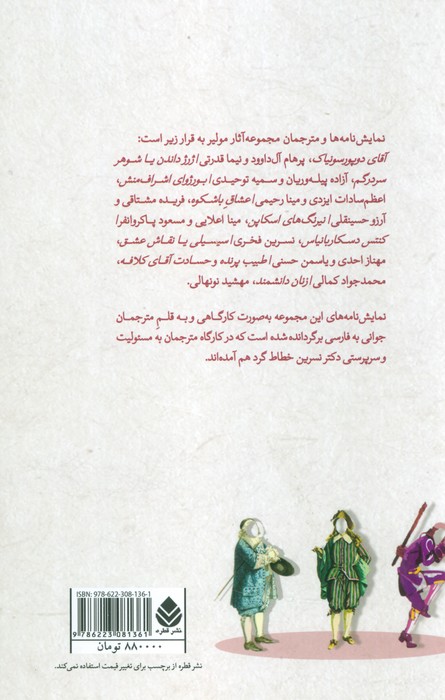 نمایش‌نامه‌ها و مترجمان مجموعه‌آثار مولیر به قرار زیر است:
آقای دوپورسونیاک، پرهام آل‌داوود و نیما قدرتی/ ژرژ داندن یا شوهر
سردرگم، آزاده پیله‌وریان و سمیه توحیدی/ بورژوای اشراف‌منش،
اعظم‌سادات ایزدی و مینا رحیمی/ عشاق باشکوه، فریده مشتاقی و
آرزو حسینقلی/ نیرنگ‌های اسکاپن، مینا اعلایی و مسعود پاکروانفر/
کنتس دسکاربانیاس، نسرین فخری/ سیسیلی یا نقاش عشق،
مهناز احدی و یاسمن حسنی/ طبیب پرنده و حسادت آقای کلافه،
محمدجواد کمالی/ زنان دانشمند، مهشید نونهالی.
نمایش‌نامه‌های این مجموعه به‌صورت کارگاهی و به قلمِ مترجمان
جوانی به فارسی برگردانده شده است که در کارگاه مترجمان به مسئولیت
و سرپرستی دکتر نسرین خطاط گرد هم آمده‌اند.
ISBN: 978-622-308-136-1
9 786223 081361
نشر قطره
۸۸۰۰۰۰ تومان
نشر قطره از برچسب برای تغییر قیمت استفاده نمی‌کند.